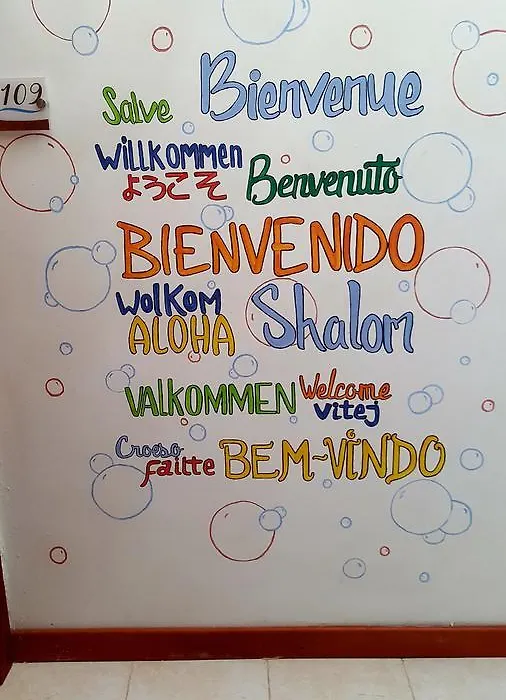 109
Salve Bienvenue
WILLKOMMEN
ようこそ Benvenuto
BIENVENIDO
WOLKOM
ALOHA Shalom
VALKOMMEN Welcome
vitej
Croeso
Faitte BEM~VINDO